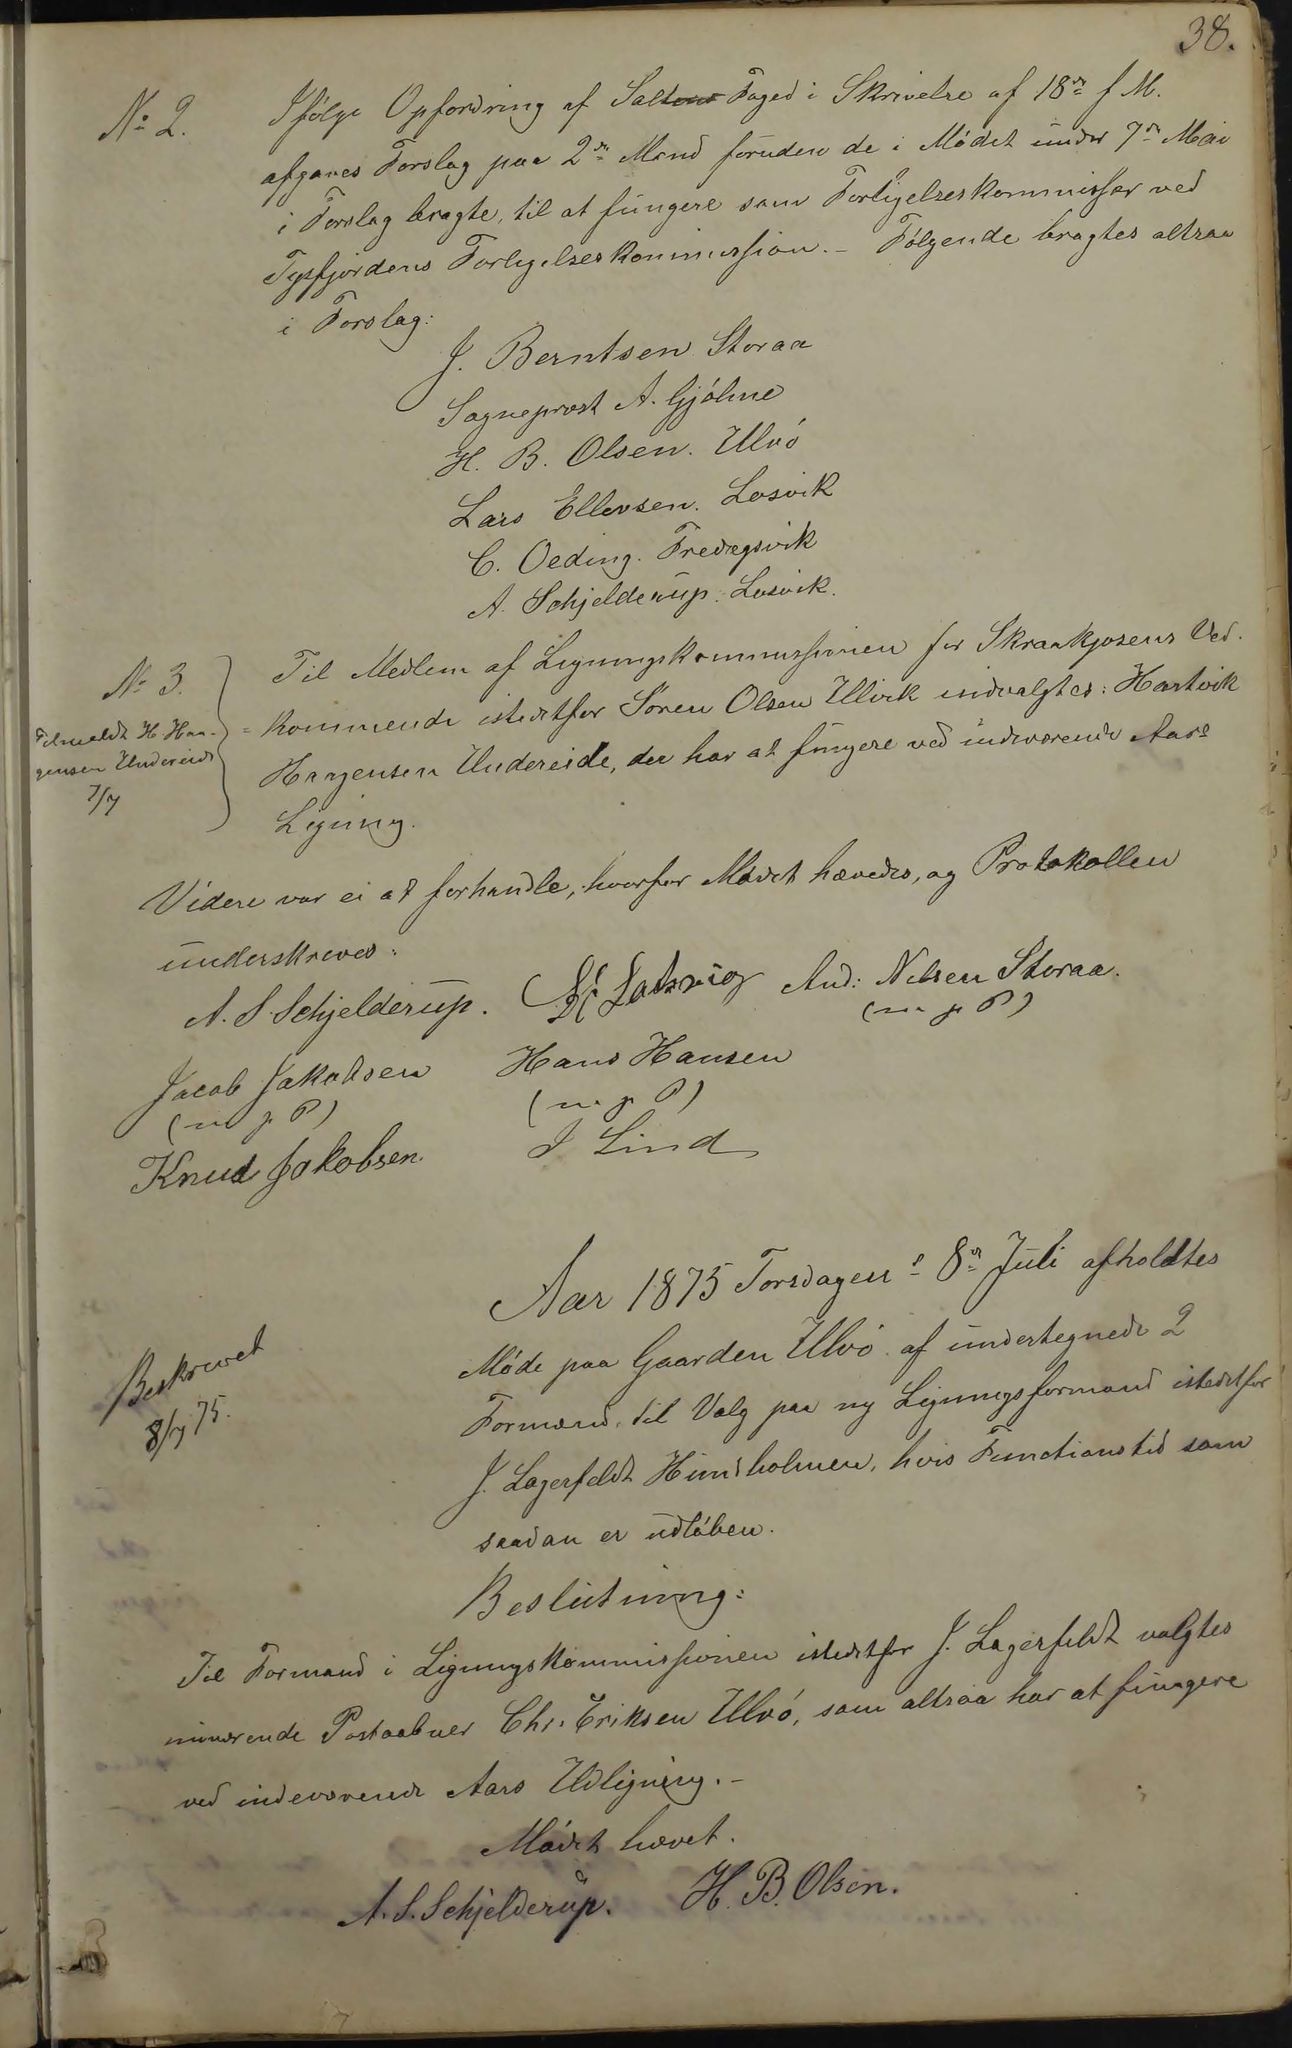 38.
No 2.
Ifølge Opfordring af Saltens Foged i Skrivelse af 18de f M.
afgaves Forslag paa 2de Mænd foruden de i Mødet under 7de Mai
i Forslag bragte, til at fungere som Forligelseskommissær ved
Tysfjordens Forligelseskommission. – Følgende bragtes altsaa
i Forslag:
J. Berntsen Storaa
Sogneprest A. Gjølme
H. B. Olsen. Ulvø
Lars Ellevsen. Losvik
C. Oeding. Fredagsvik
A. Schjelderup. Losvik.
No 3.
Tilmeldt H Haa-
gensen Undereide
7/7
Til Medlem af Ligningskommissionen for Skraakjosens Ved-
kommende istedetfor Søren Olsen Ulvik indvalgtes: Hartvik
Haagensen Undereide, der har at fungere ved indeværende Aars
Ligning.
Videre var ei at forhandle, hvorfor Mødet hævedes, og Protokollen
underskreves:
A. S. Schjelderup.
And: Nilsen Storaa.
(m p P)
Jacob Jakobsen
Hans Hansen
(m p P)
(m p P)
Knud Jakobsen.
J Lind
Beskrevet
8/7 75.
Aar 1875 Torsdagen d 8de Juli afholdtes
Møde paa Gaarden Ulvø af undertegnede 2
Formænd til Valg paa ny Ligningsformand istedetfor
J. Lagerfeldt Hundholmen, hvis Functionstid som
saadan er udløben.
Beslutning:
Til Formand i Ligningskommissionen istedetfor J. Lagerfeldt valgtes
nuværende Postaabner Chr. Eriksen Ulvø, som altsaa har at fungere
ved indeværende Aars Udligning. –
Mødet hævet.
A. S. Schjelderup. H. B. Olsen.